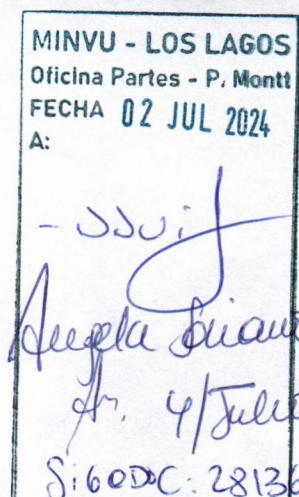 MINVU - LOS LAGOS
Oficina Partes - P. Montt
FECHA 02 JUL 2024
A:
Angela
4/Julio
SiGEDOC: 28136